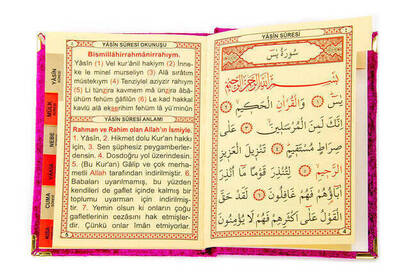 YÂSÎN SÛRESİ OKUNUŞU
Bismillâhirrahmânirrahıym.
Yâsîn (1) Vel kur'ânil hakiym (2) İnne-
ke le minel murseliyn (3) Alâ sırâtım
müstekıym (4) Tenziylel aziyzir rahıym
(5) Li tünzira kavmem mâ ünzira âbâ-
ühüm fehüm gâfilûn (6) Le kad hakkal
kavlü alâ ekserihim fehüm lâ yü'minûn
YÂSÎN SÛRESİ ANLAMI
Rahman ve Rahim olan Allah'ın İsmiyle.
1. Yâsîn, 2. Hikmet dolu Kur'an hakkı
için, 3. Sen şüphesiz peygamberler-
densin. 4. Dosdoğru yol üzerindesin.
5. (Bu Kur'an) Gâlip ve çok merha-
metli Allah tarafından indirilmiştir. 6.
Babaları uyarılmamış, bu yüzden
kendileri de gaflet içinde kalmış bir
toplumu uyarman için indirilmiş-
tir. 7. Yemin olsun ki onların çoğu
gafletlerinin cezasını hak etmişler-
dir. Çünkü onlar İman etmiyorlar.
MÜLK
NEBE
VAKIA
CUMA
KISA
YÂSÎN SÛRESİ
سُورَةُ يٰسٓ
بِسْمِ اللّٰهِ الرَّحْمٰنِ الرَّحِيمِ
يٰسٓ ﴿١﴾ وَالْقُرْاٰنِ الْحَكِيمِ ﴿٢﴾
اِنَّكَ لَمِنَ الْمُرْسَلِينَ ﴿٣﴾ عَلٰى
صِرَاطٍ مُسْتَقِيمٍ ﴿٤﴾ تَنْزِيلَ الْعَزِيزِ
الرَّحِيمِ ﴿٥﴾ لِتُنْذِرَ قَوْمًا مَٓا اُنْذِرَ
اٰبَٓاؤُهُمْ فَهُمْ غَافِلُونَ ﴿٦﴾ لَقَدْ حَقَّ
الْقَوْلُ عَلٰٓى اَكْثَرِهِمْ فَهُمْ لَا يُؤْمِنُونَ